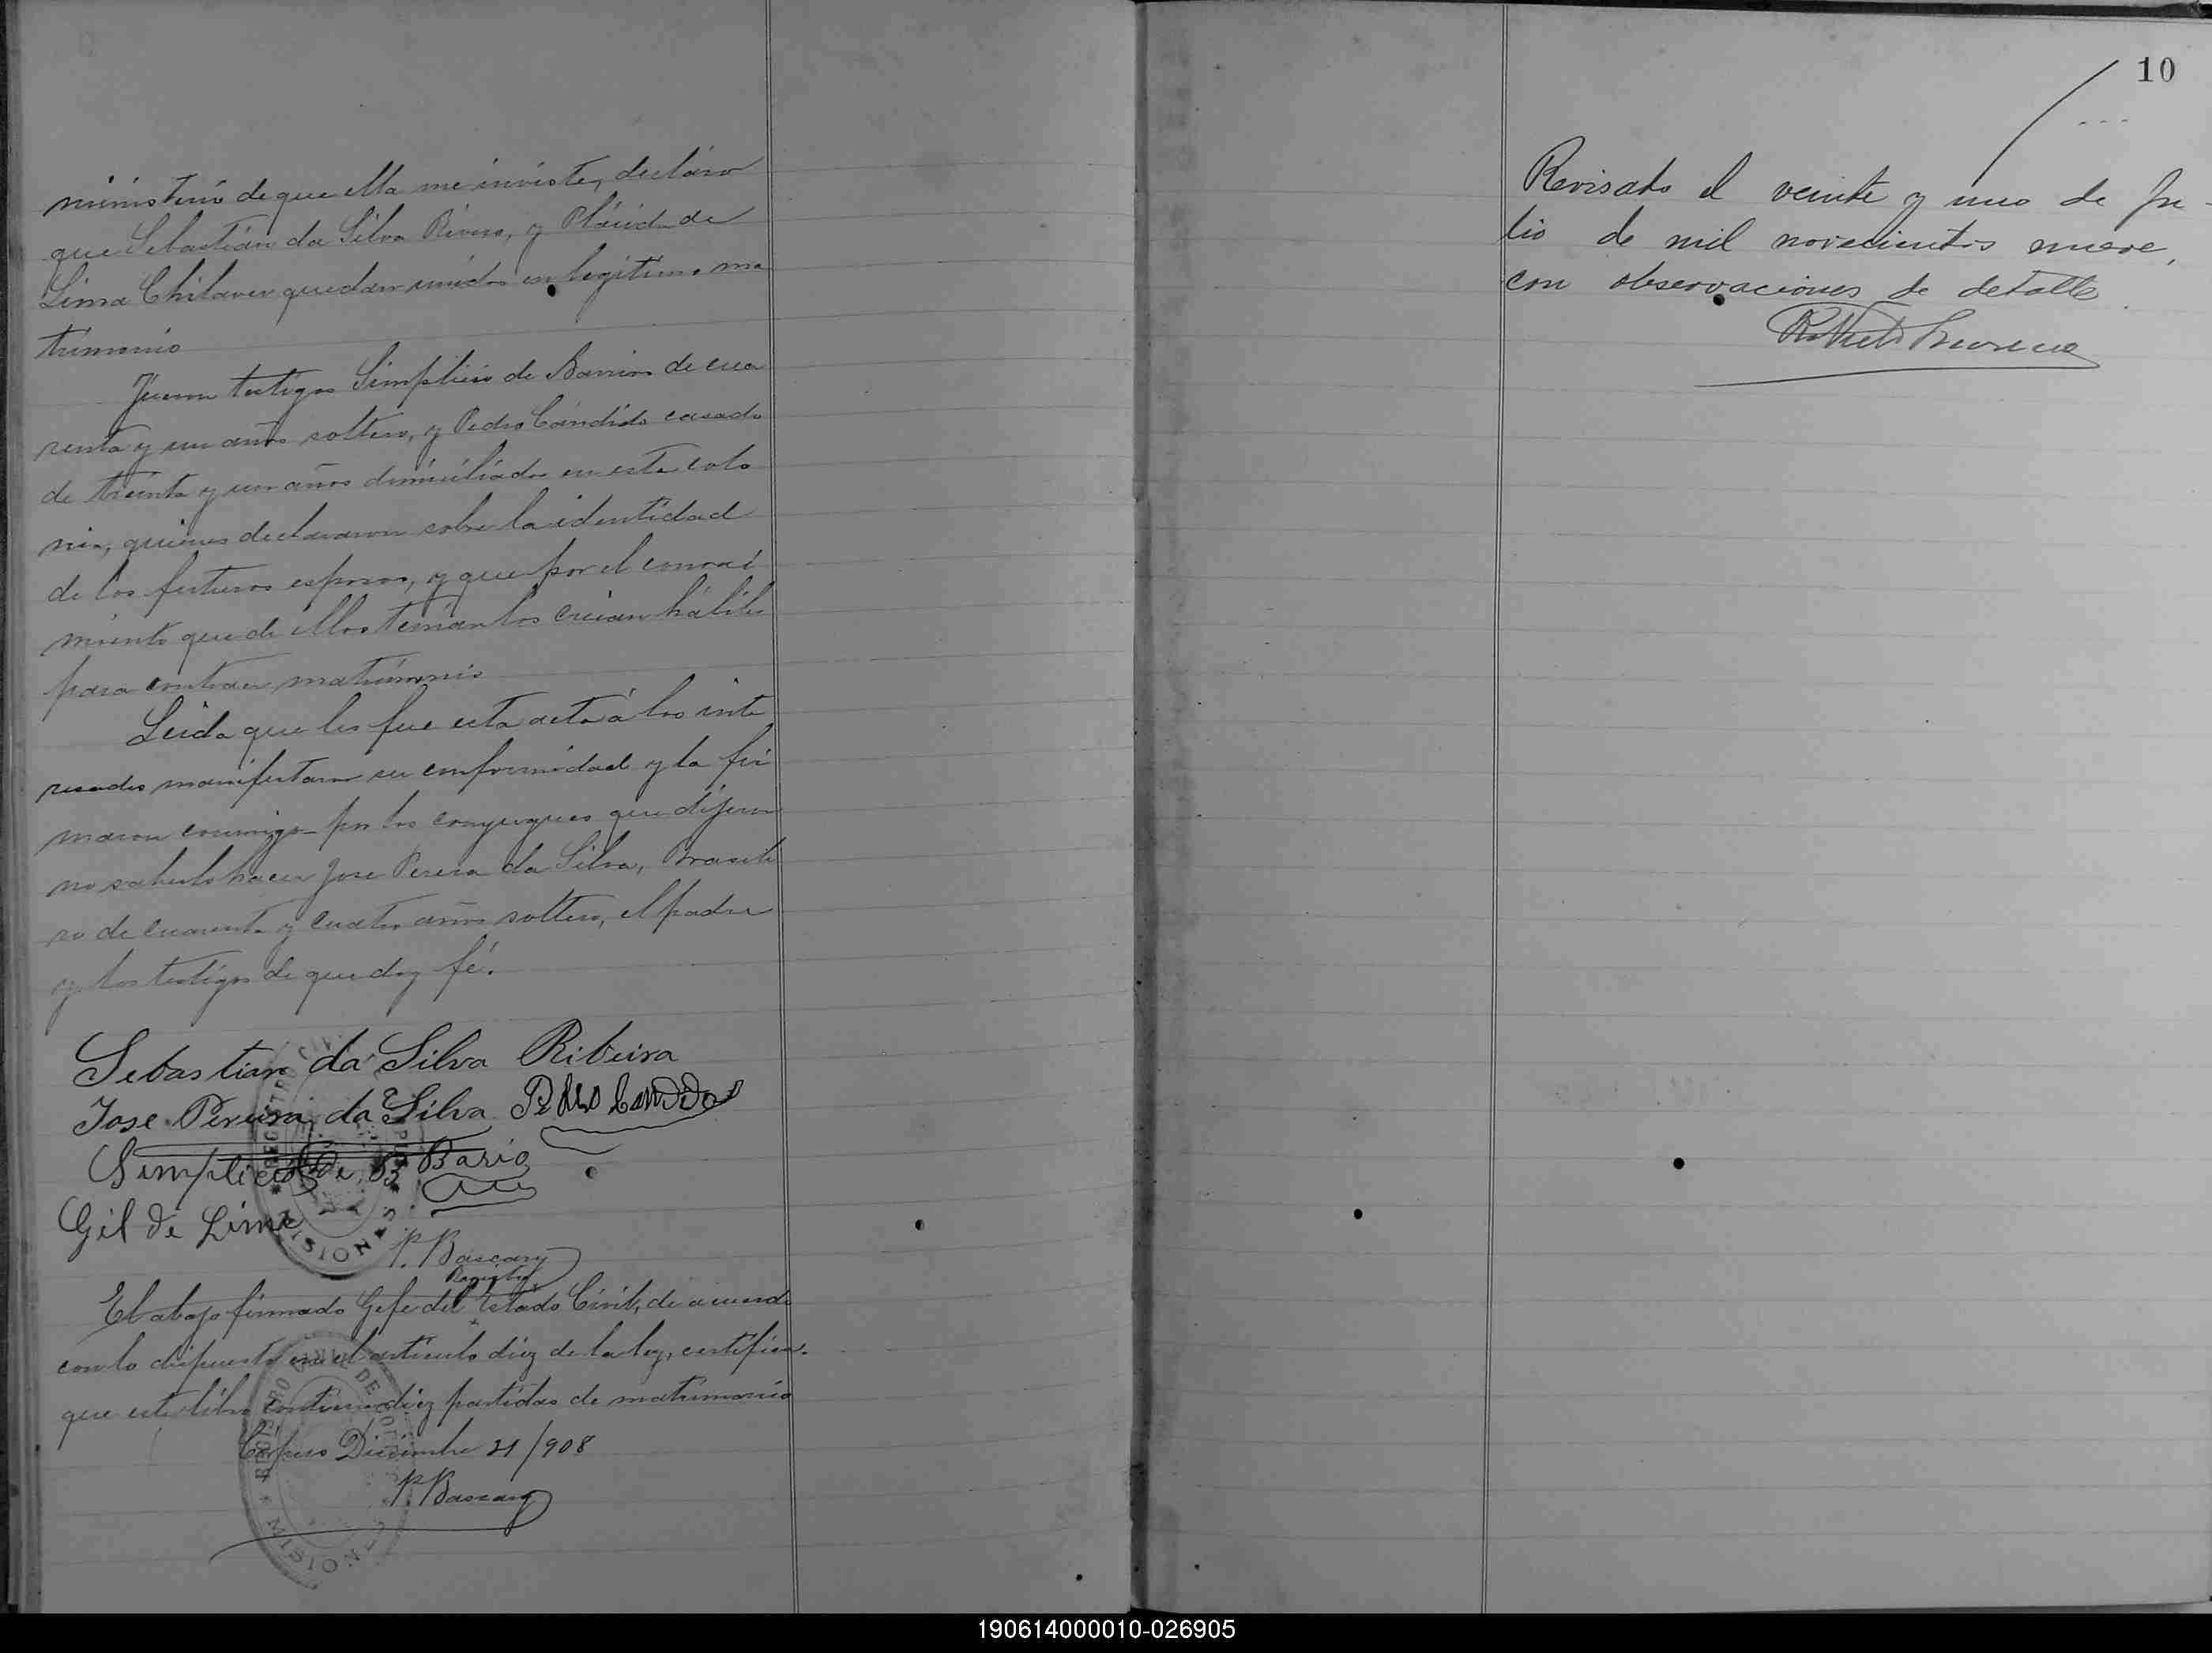 ministerio de que ella me inviste, declaro
que Sebastián da Silva Rivero, y Plácida de
Lima Chilaver quedan unidos en legítimo ma
trimonio
Fueron testigos Simplicio de Barrios de cua
renta y un años soltero, y Pedro Cándido casado
de treinta y un años domiciliados en esta colo
nia, quienes declararon sobre la identidad
de los futuros esposos, y que por el conoci
miento que de ellos tenían los creian hábiles
para contraer matrimonio
Leida que les fue esta acta á los inte
resados manifestaron su conformidad y la fir
maron conmigo por los conyugues que dijeron
no saberlo hacer Jose Pereira da Silva, Brasile
ro de cuarenta y cuatro años soltero, el padre
y los testigos de que doy fé.
Sebastian da Silva Ribeira
Jose Pereira da Silva Pedro Candido
Simplicio de B Bario
Gil de Lima
P. Bascary
Registro
El abajo firmado Gefe del Estado Civil, de acuerdo
con lo dispuesto en el artículo diez de la ley, certifica
que este libro contiene diez partidas de matrimonio
Corpus Diciembre 31/908
P. Bascary
REGISTRO CIVIL
MISIONES
REGISTRO CIVIL DE
MISIONES
10
Revisado el veinte y uno de Ju-
lio de mil novecientos nueve,
con observaciones de detalle.
190614000010-026905